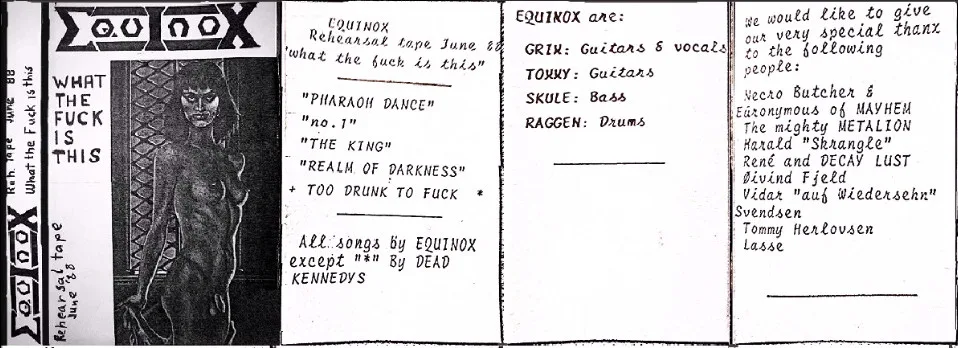 Reh. Tape June '88
What the Fuck is this
EQUINOX
EQUINOX
WHAT
THE
FUCK
IS
THIS
Rehearsal tape
June '88
EQUINOX
Rehearsal tape June 88
"what the fuck is this"
"PHARAOH DANCE"
"no.1"
"THE KING"
"REALM OF DARKNESS"
+ TOO DRUNK TO FUCK *
All songs by EQUINOX
except "*" By DEAD
KENNEDYS
EQUINOX are:
GRIM: Guitars & vocals
TOMMY: Guitars
SKULE: Bass
RAGGEN: Drums
We would like to give
our very special thanx
to the following
people:
Necro Butcher &
Euronymous of MAYHEM
The mighty METALION
Harald "Skrangle"
René and DECAY LUST
Øivind Fjeld
Vidar "auf Wiedersehn"
Svendsen
Tommy Herlovsen
Lasse